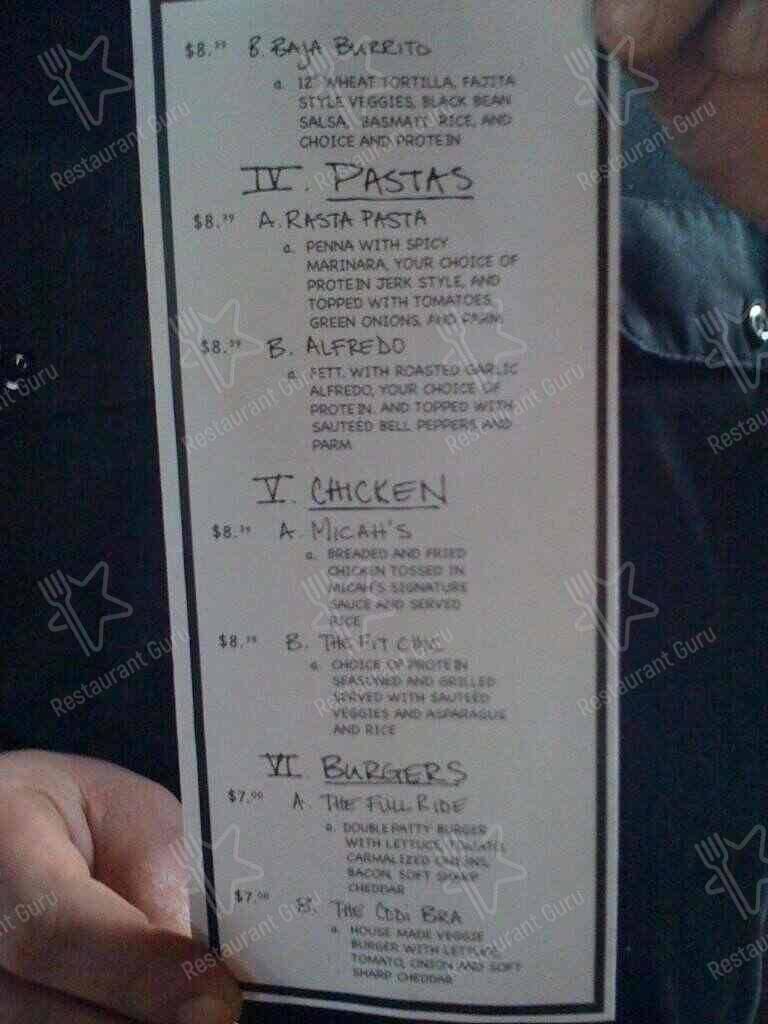 $8.99 B. BAJA BURRITO
a. 12" WHEAT TORTILLA, FAJITA
STYLE VEGGIES, BLACK BEAN
SALSA, BASMATI RICE, AND
CHOICE AND PROTEIN
IV. PASTAS
$8.99 A. RASTA PASTA
a. PENNA WITH SPICY
MARINARA, YOUR CHOICE OF
PROTEIN JERK STYLE, AND
TOPPED WITH TOMATOES,
GREEN ONIONS, AND PARM
$8.99 B. ALFREDO
a. FETT. WITH ROASTED GARLIC
ALFREDO, YOUR CHOICE OF
PROTEIN, AND TOPPED WITH
SAUTEED BELL PEPPERS AND
PARM
V. CHICKEN
$8.99 A. MICAH'S
a. BREADED AND FRIED
CHICKEN TOSSED IN
MICAH'S SIGNATURE
SAUCE AND SERVED
RICE
$8.99 B. THE FIT CHIC
a. CHOICE OF PROTEIN
SEASONED AND GRILLED
SERVED WITH SAUTEED
VEGGIES AND ASPARAGUS
AND RICE
VI. BURGERS
$7.00 A. THE FULL RIDE
a. DOUBLE PATTY BURGER
WITH LETTUCE, TOMATO,
CARMALIZED ONIONS,
BACON, SOFT SHARP
CHEDDAR
$7.00 B. THE CODI BRA
a. HOUSE MADE VEGGIE
BURGER WITH LETTUCE,
TOMATO, ONION AND SOFT
SHARP CHEDDAR
Restaurant Guru